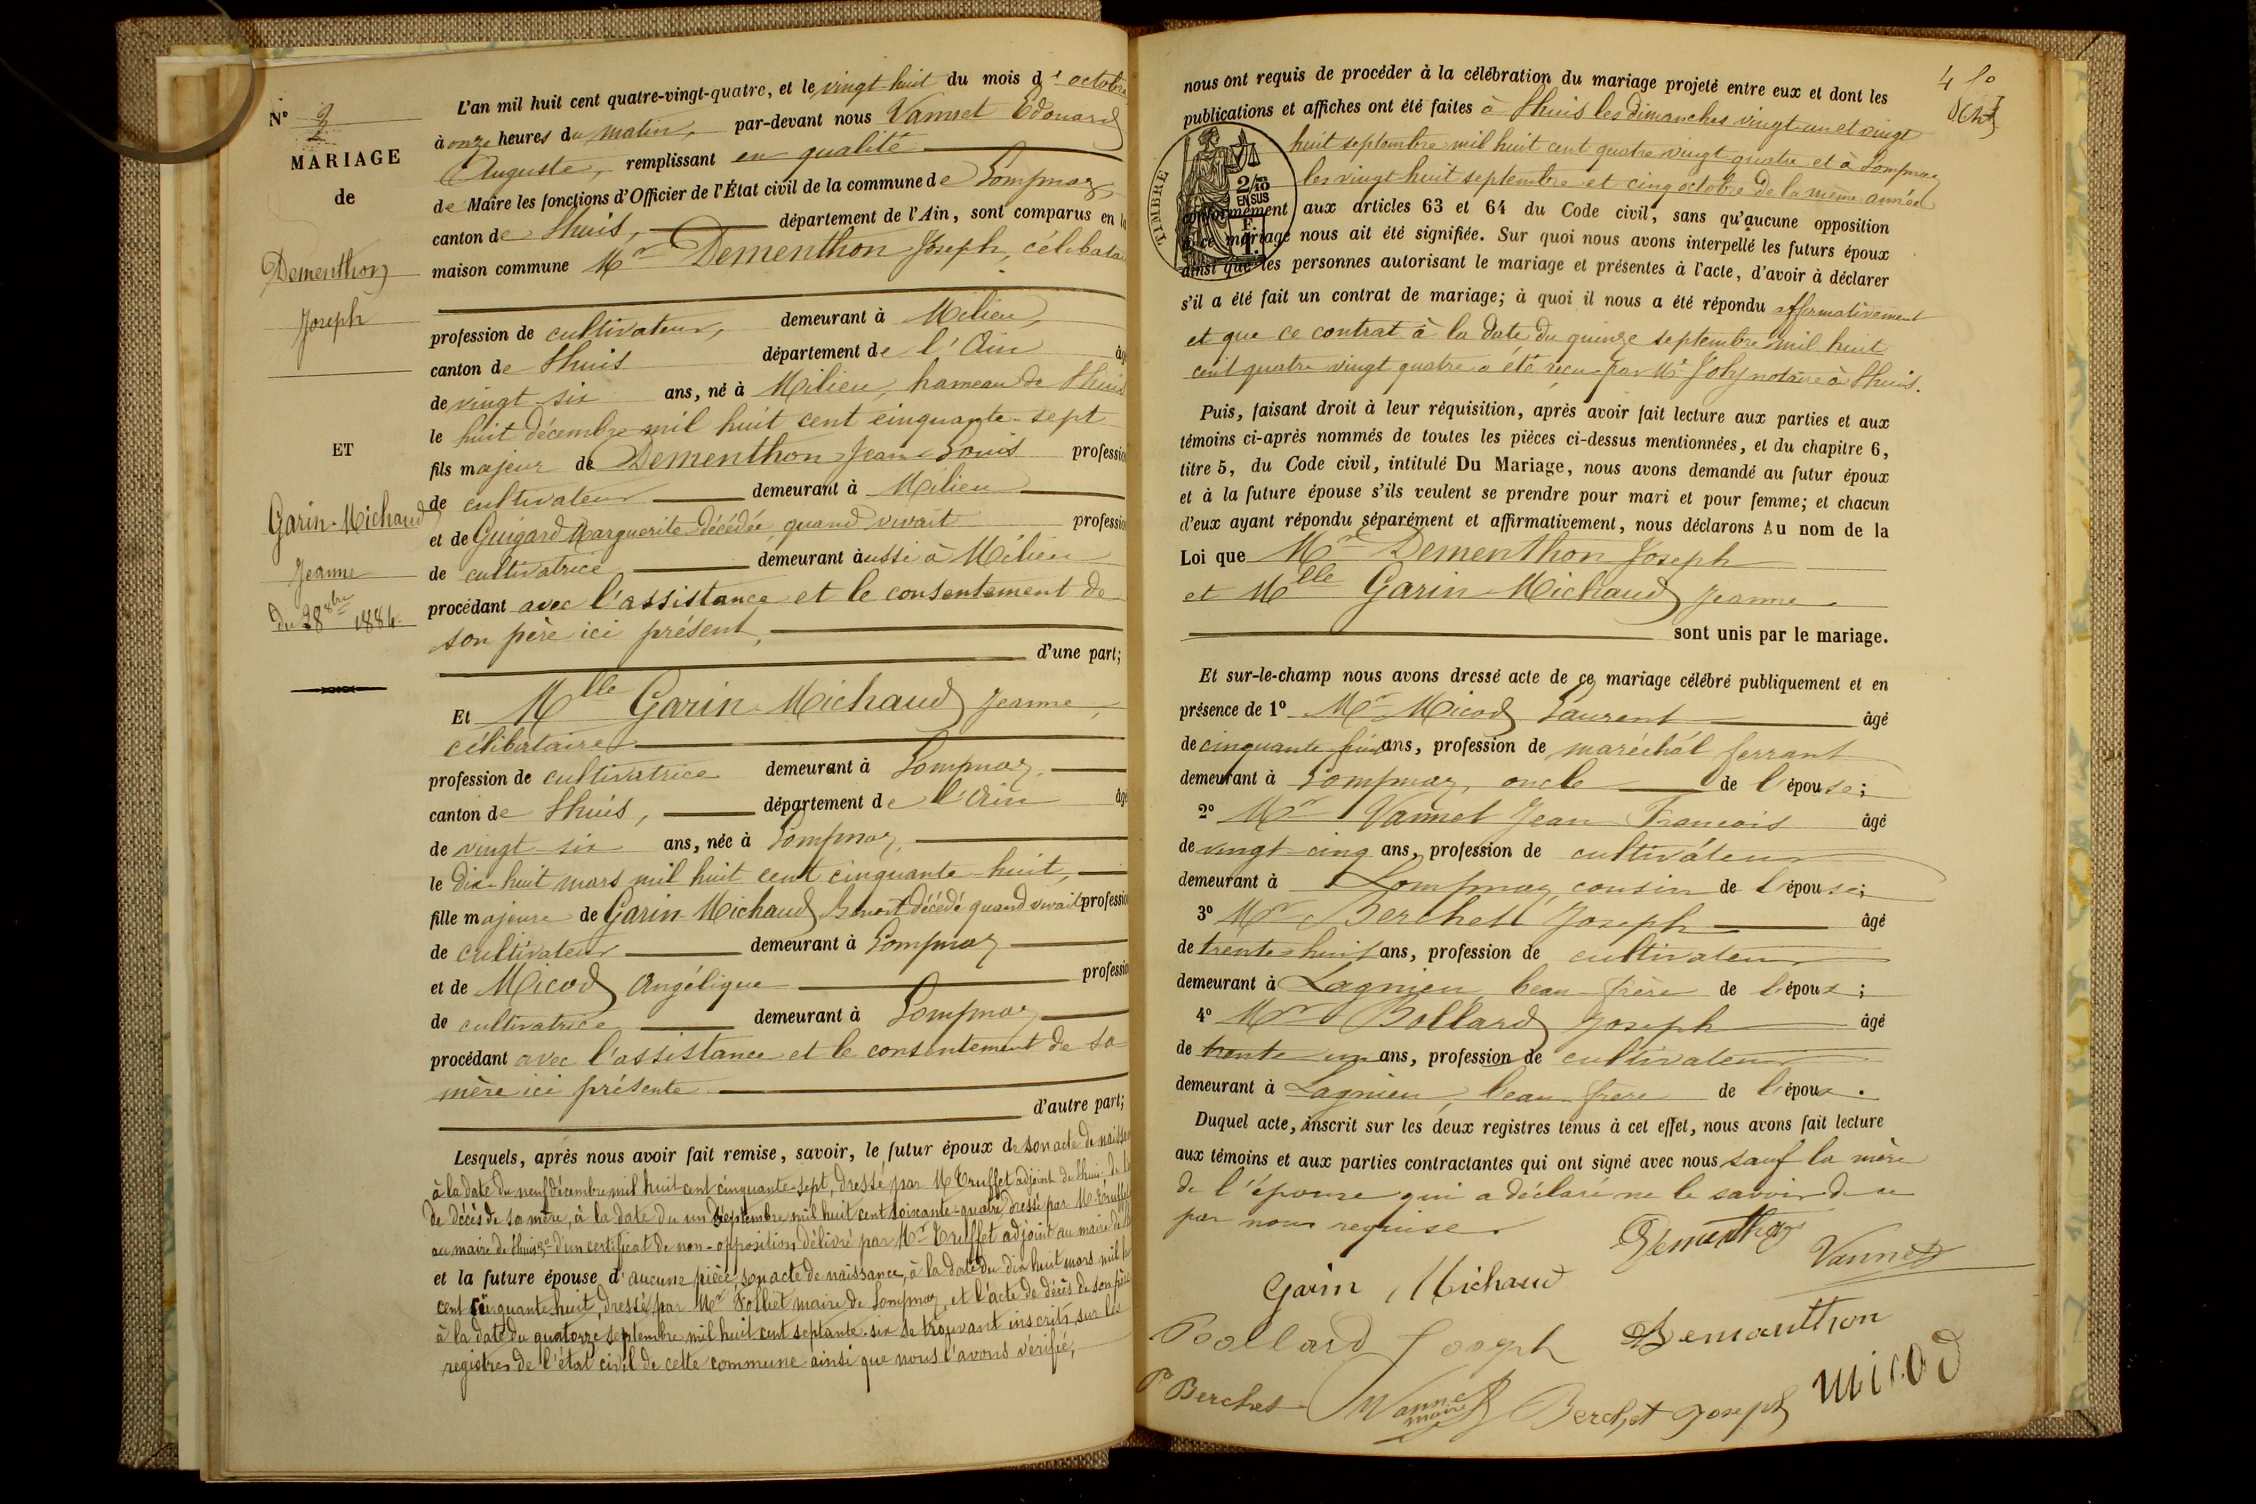 N° 2
MARIAGE
de
Dementhon
Joseph
ET
Garin-Michaud
Jeanne
Du 28 8bre 1884.
L'an mil huit cent quatre-vingt-quatre, et le vingt huit du mois d' octobre
à onze heures du matin, par-devant nous Vannet Edouard
Auguste, remplissant en qualité
de Maire les fonctions d'Officier de l'État civil de la commune de Lompnaz,
canton de Lhuis, département de l'Ain, sont comparus en la
maison commune Mr Dementhon Joseph, célibataire
profession de cultivateur, demeurant à Milieu,
canton de Lhuis département de l'Ain âgé
de vingt-six ans, né à Milieu, hameau de Lhuis
le huit décembre mil huit cent cinquante-sept
fils majeur de Dementhon Jean-Louis profession
de cultivateur demeurant à Milieu
et de Guigard Marguerite décédée, quand vivait profession
de cultivatrice demeurant aussi à Milieu
procédant avec l'assistance et le consentement de
son père ici présent,
d'une part;
Et Mlle Garin-Michaud Jeanne,
célibataire
profession de cultivatrice demeurant à Lompnaz,
canton de Lhuis, département de l'Ain âgé
de vingt-six ans, née à Lompnaz,
le dix-huit mars mil huit cent cinquante-huit,
fille majeure de Garin-Michaud décédé quand vivait profession
de cultivateur demeurant à Lompnaz
et de Micod Angélique profession
de cultivatrice demeurant à Lompnaz
procédant avec l'assistance et le consentement de sa
mère ici présente
d'autre part;
Lesquels, après nous avoir fait remise, savoir, le futur époux de son acte de naissance
à la date du neuf décembre mil huit cent cinquante-sept, dressé par M Truffet adjoint de Lhuis, de
de décès de sa mère, à la date du un septembre mil huit cent soixante-quatre dressé par M. Truffet
au maire de Lhuis, d'un certificat de non-opposition délivré par Mr Truffet adjoint au maire de
et la future épouse d'aucune pièce, son acte de naissance, à la date du dix huit mars mil
cent cinquante huit, dressé par Mr Folliet maire de Lompnaz, et l'acte de décès de son père
à la date du quatorze septembre mil huit cent septante-six se trouvant inscrits sur les
registres de l'état civil de cette commune ainsi que nous l'avons vérifié,
nous ont requis de procéder à la célébration du mariage projeté entre eux et dont les
publications et affiches ont été faites à Lhuis les dimanches vingt-un et vingt
huit septembre mil huit cent quatre vingt quatre et à Lompnaz
les vingt huit septembre et cinq octobre de la même année
conformément aux articles 63 et 64 du Code civil, sans qu'aucune opposition
à ce mariage nous ait été signifiée. Sur quoi nous avons interpellé les futurs époux
ainsi que les personnes autorisant le mariage et présentes à l'acte, d'avoir à déclarer
s'il a été fait un contrat de mariage; à quoi il nous a été répondu affirmativement
et que ce contrat à la date du quinze septembre mil huit
cent quatre vingt quatre a été reçu par Me Joly notaire à Lhuis.
TIMBRE
2/10
EN SUS
Puis, faisant droit à leur réquisition, après avoir fait lecture aux parties et aux
témoins ci-après nommés de toutes les pièces ci-dessus mentionnées, et du chapitre 6,
titre 5, du Code civil, intitulé Du Mariage, nous avons demandé au futur époux
et à la future épouse s'ils veulent se prendre pour mari et pour femme; et chacun
d'eux ayant répondu séparément et affirmativement, nous déclarons Au nom de la
Loi que Mr Dementhon Joseph
et Mlle Garin-Michaud Jeanne
sont unis par le mariage.
Et sur-le-champ nous avons dressé acte de ce mariage célébré publiquement et en
présence de 1° Mr Micod Laurent âgé
de cinquante ans, profession de maréchal ferrant
demeurant à Lompnaz, oncle de l'épouse;
2° Mr Vannet Jean François âgé
de vingt-cinq ans, profession de cultivateur
demeurant à Lompnaz cousin de l'épouse;
3° Mr Berchet Joseph âgé
de trente-huit ans, profession de cultivateur
demeurant à Lagnieu beau-frère de l'époux;
4° Mr Bollard Joseph âgé
de trente-un ans, profession de cultivateur
demeurant à Lagnieu, beau-frère de l'époux.
Duquel acte, inscrit sur les deux registres tenus à cet effet, nous avons fait lecture
aux témoins et aux parties contractantes qui ont signé avec nous sauf la mère
de l'épouse qui a déclaré ne le savoir de ce
par nous requise.
Dementhon
Vannet
Garin Michaud
Bollard Joseph Dementhon
Berchet Vannet maire Berchet Joseph Micod